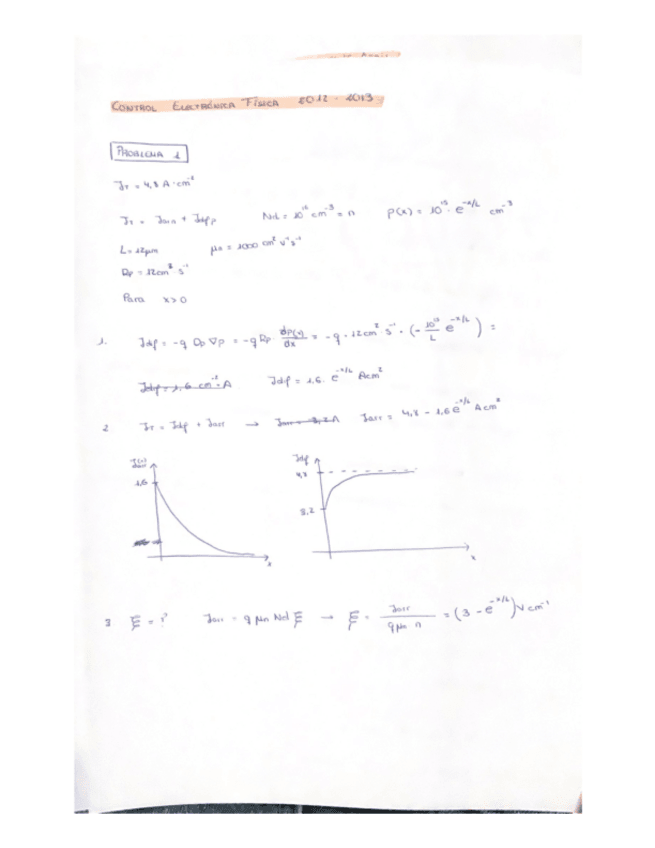 CONTROL ELECTRÓNICA FÍSICA 2012 - 2013
PROBLEMA 1
J_T = 4,8 A·cm⁻²
J_T = J_arr n + J_dif p   Nd = 10¹⁶ cm⁻³ = n   P(x) = 10¹⁵ · e^(-x/L) cm⁻³
L = 12 μm   μn = 1000 cm² V⁻¹ s⁻¹
Dp = 12 cm² s⁻¹
Para x > 0
1. J_dif = -q Dp ∇p = -q Dp · dP(x)/dx = -q · 12 cm² s⁻¹ · (- 10¹⁵/L e^(-x/L)) =
J_dif = 1,6 · e^(-x/L) A cm²
2 J_T = J_dif + J_arr → J_arr = 4,8 - 1,6 e^(-x/L) A cm²
1,6
x
J_dif
4,8
3,2
x
3 ξ = ? J_arr = q μn Nd ξ → ξ = J_arr / (q μn n) = (3 - e^(-x/L)) V cm⁻¹